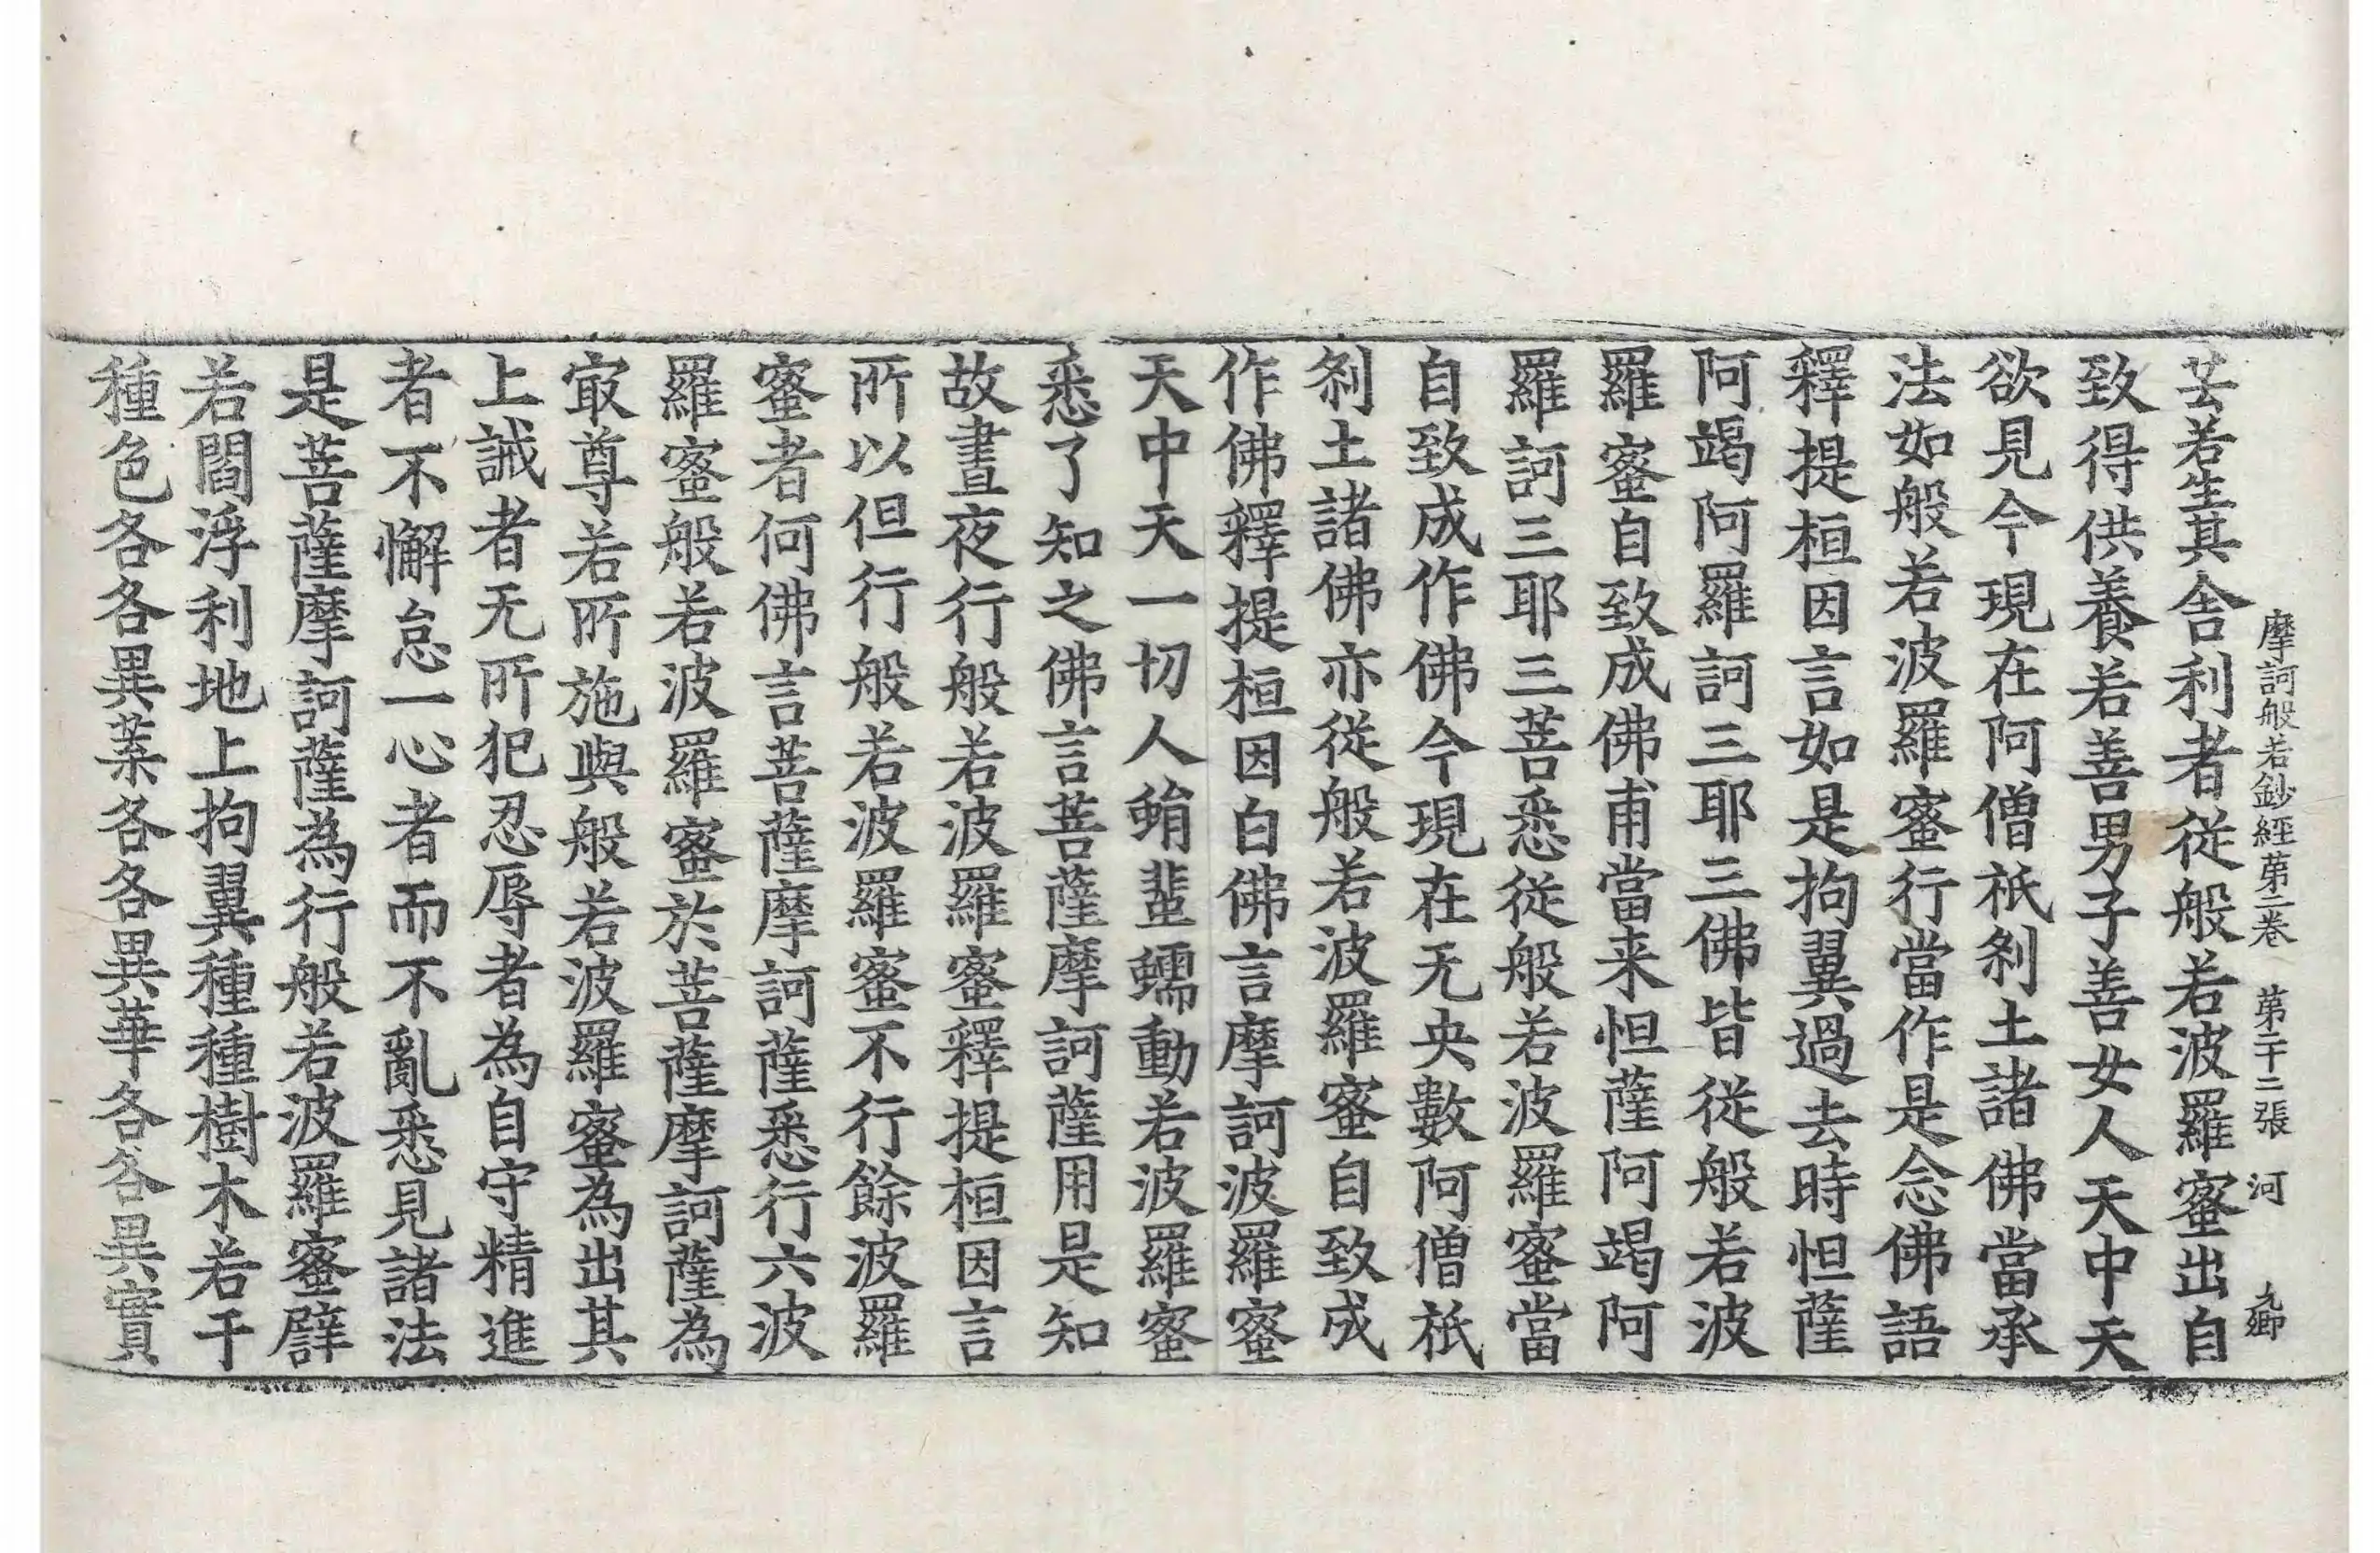 摩訶般若鈔經苐二卷 苐二十二張 河 九鄉
芸若生其舎利者從般若波羅蜜出自
致得供養若善男子善女人天中天
欲見今現在阿僧祇刹土諸佛當承
法如般若波羅蜜行當作是念佛語
釋提桓因言如是拘翼過去時怛薩
阿竭阿羅訶三耶三佛皆從般若波
羅蜜自致成佛甫當来怛薩阿竭阿
羅訶三耶三菩悉從般若波羅蜜當
自致成作佛今現在无央數阿僧祇
刹土諸佛亦從般若波羅蜜自致成
作佛釋提桓因白佛言摩訶波羅蜜
天中天一切人蜎蜚蠕動若波羅蜜
悉了知之佛言菩薩摩訶薩用是知
故晝夜行般若波羅蜜釋提桓因言
所以但行般若波羅蜜不行餘波羅
蜜者何佛言菩薩摩訶薩悉行六波
羅蜜般若波羅蜜於菩薩摩訶薩為
冣尊若所施與般若波羅蜜為出其
上誡者无所犯忍辱者為自守精進
者不懈怠一心者而不亂悉見諸法
是菩薩摩訶薩為行般若波羅蜜譬
若閻浮利地上拘翼種種樹木若干
種色各各異葉各各異華各各異實